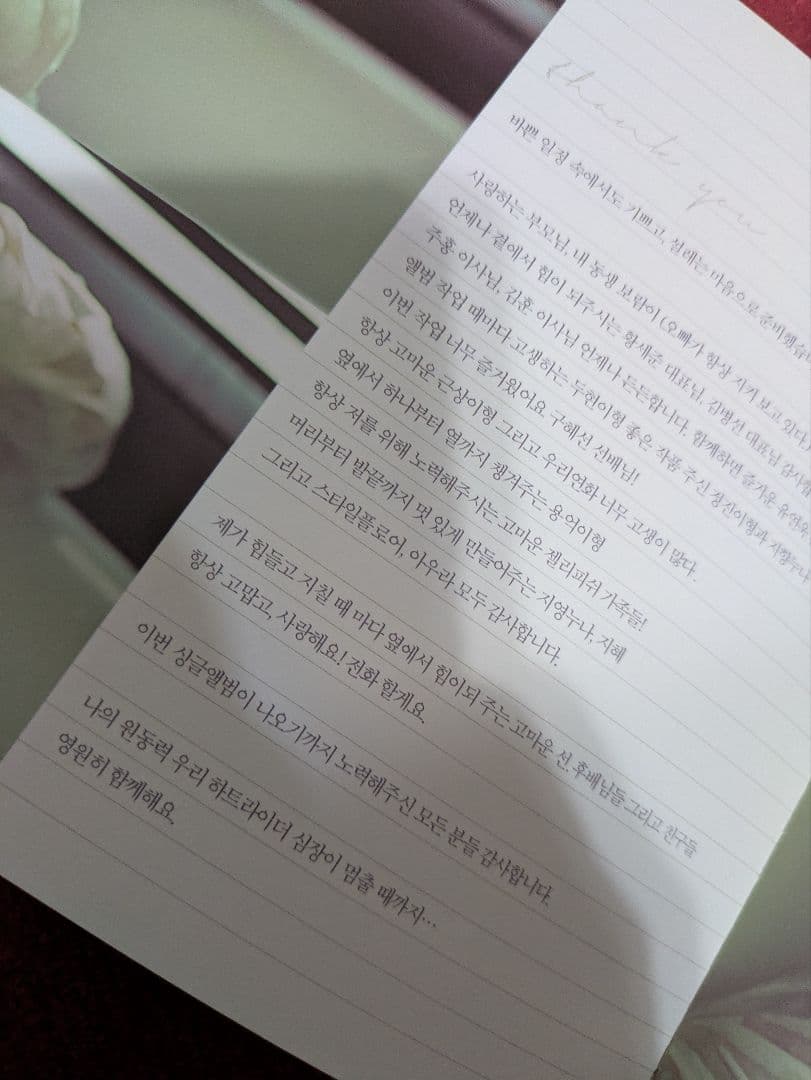 thank you
바쁜 일정 속에서도 기쁘고, 설레는 마음으로 준비했습
사랑하는 부모님, 내 동생 보람이 (오빠가 항상 지켜 보고 있다.)
언제나 곁에서 힘이 되주시는 황세준 대표님, 김병선 대표님 감사
주홍 이사님, 김훈 이사님 언제나 든든합니다. 함께하면 즐거운
앨범 작업 때마다 고생하는 두헌이형 좋은 작품 주신 정진이형과
이번 작업 너무 즐거웠어요 구혜선 선배님!
항상 고마운 근상이형 그리고 우리연화 너무 고생이 많다.
옆에서 하나부터 열까지 챙겨주는 용어이형
항상 저를 위해 노력해주시는 고마운 젤리피쉬 가족들!
머리부터 발끝까지 멋 있게 만들어주는 지영누나, 지혜
그리고 스타일플로어, 아우라 모두 감사합니다.
제가 힘들고 지칠 때 마다 옆에서 힘이되 주는 고마운 선.후배님들 그리고 친구들
항상 고맙고, 사랑해요! 전화 할게요.
이번 싱글앨범이 나오기까지 노력해주신 모든 분들 감사합니다.
나의 원동력 우리 하트라이더 심장이 멈출 때까지...
영원히 함께해요.